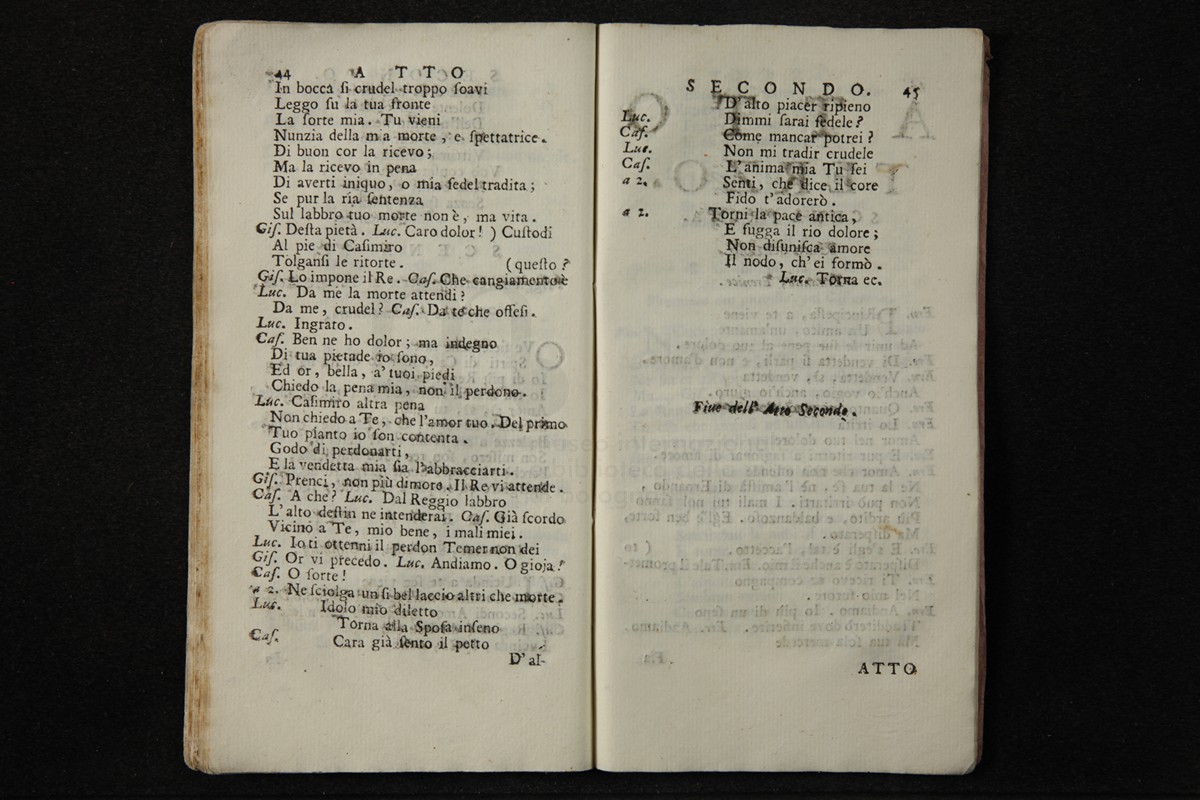 44 ATTO
In bocca ſi crudel troppo ſoavi
Leggo ſu la tua fronte
La ſorte mia. Tu vieni
Nunzia della mia morte, e ſpettatrice.
Di buon cor la ricevo;
Ma la ricevo in pena
Di averti iniquo, o mia fedel tradita;
Se pur la ria ſentenza
Sul labbro tuo morte non è, ma vita.
Giſ. Deſta pietà. Luc. Caro dolor! ) Cuſtodi
Al pie di Caſimiro
Tolganſi le ritorte. (queſto?
Giſ. Lo impone il Re. Caſ. Che cangiamento è
Luc. Da me la morte attendi?
Da me, crudel? Caſ. Da te che offeſi.
Luc. Ingrato.
Caſ. Ben ne ho dolor; ma indegno
Di tua pietade io ſono,
Ed or, bella, a' tuoi piedi
Chiedo la pena mia, non il perdono.
Luc. Caſimiro altra pena
Non chiedo a Te, che l'amor tuo. Del primo
Tuo pianto io ſon contenta.
Godo di perdonarti,
E la vendetta mia ſia l'abbracciarti.
Giſ. Prenci, non più dimore. Il Re vi attende.
Caſ. A che? Luc. Dal Reggio labbro
L'alto deſtin ne intenderai. Caſ. Già ſcordo
Vicino a Te, mio bene, i mali miei.
Luc. Io ti ottenni il perdon Temer non dei
Giſ. Or vi precedo. Luc. Andiamo. O gioja!
Caſ. O ſorte!
a 2. Ne ſciolga un ſi bel laccio altri che morte.
Luc. Idolo mio diletto
Torna alla Spoſa inſeno
Caſ. Cara già ſento il petto
D' al-
SECONDO. 45
D'alto piacer ripieno
Luc. Dimmi ſarai fedele?
Caſ. Come mancar potrei?
Luc. Non mi tradir crudele
Caſ. L'anima mia Tu ſei
a 2. Senti, che dice il core
Fido t'adorerò.
a 2. Torni la pace antica,
E fugga il rio dolore;
Non diſuniſca amore
Il nodo, ch'ei formò.
Luc. Torna ec.
Fine dell' Atto Secondo.
ATTO